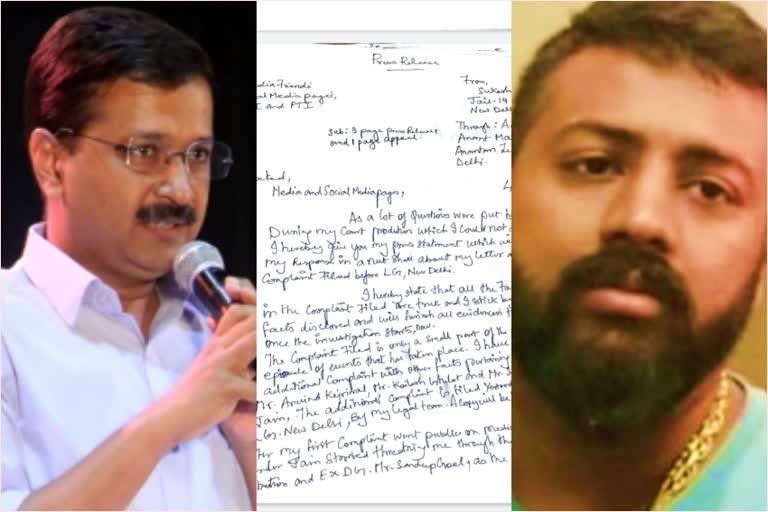 Press Release
edia Friends
From,
al Media pages,
Sukesh
I and PTI
Jail-14
New Delhi
Sub: 3 page press Release
and 1 page appeal
Through: A
Anant Ma
Delhi.
ected,
Media and Social Media pages,
As a lot of Questions were put
During my Court prodution which I could not
I hereby give you my press statement which wi
my Response in a nut Shell about my letter a
Complaint Filed before LG, New Delhi.
I hereby state that all the Fa
in the Complaint Filed are true and I stick by
facts disclosed and will furish all evidences
once the investigation starts, now.
The Complaint Filed is only a small part of the
of events that has taken place. I have
additional Complaint with other facts pertaining
Mr. Arvind Kejriwal, Mr. Kailash Gehlot and Mr. S
Jain, The additional complaint is filed
LG. New Delhi, By my legal team. A copy will be
ter my first Complaint went public on media
nder Jain Started threatning me through the
tration and EX DG. Mr. Sandeep Goel, as the